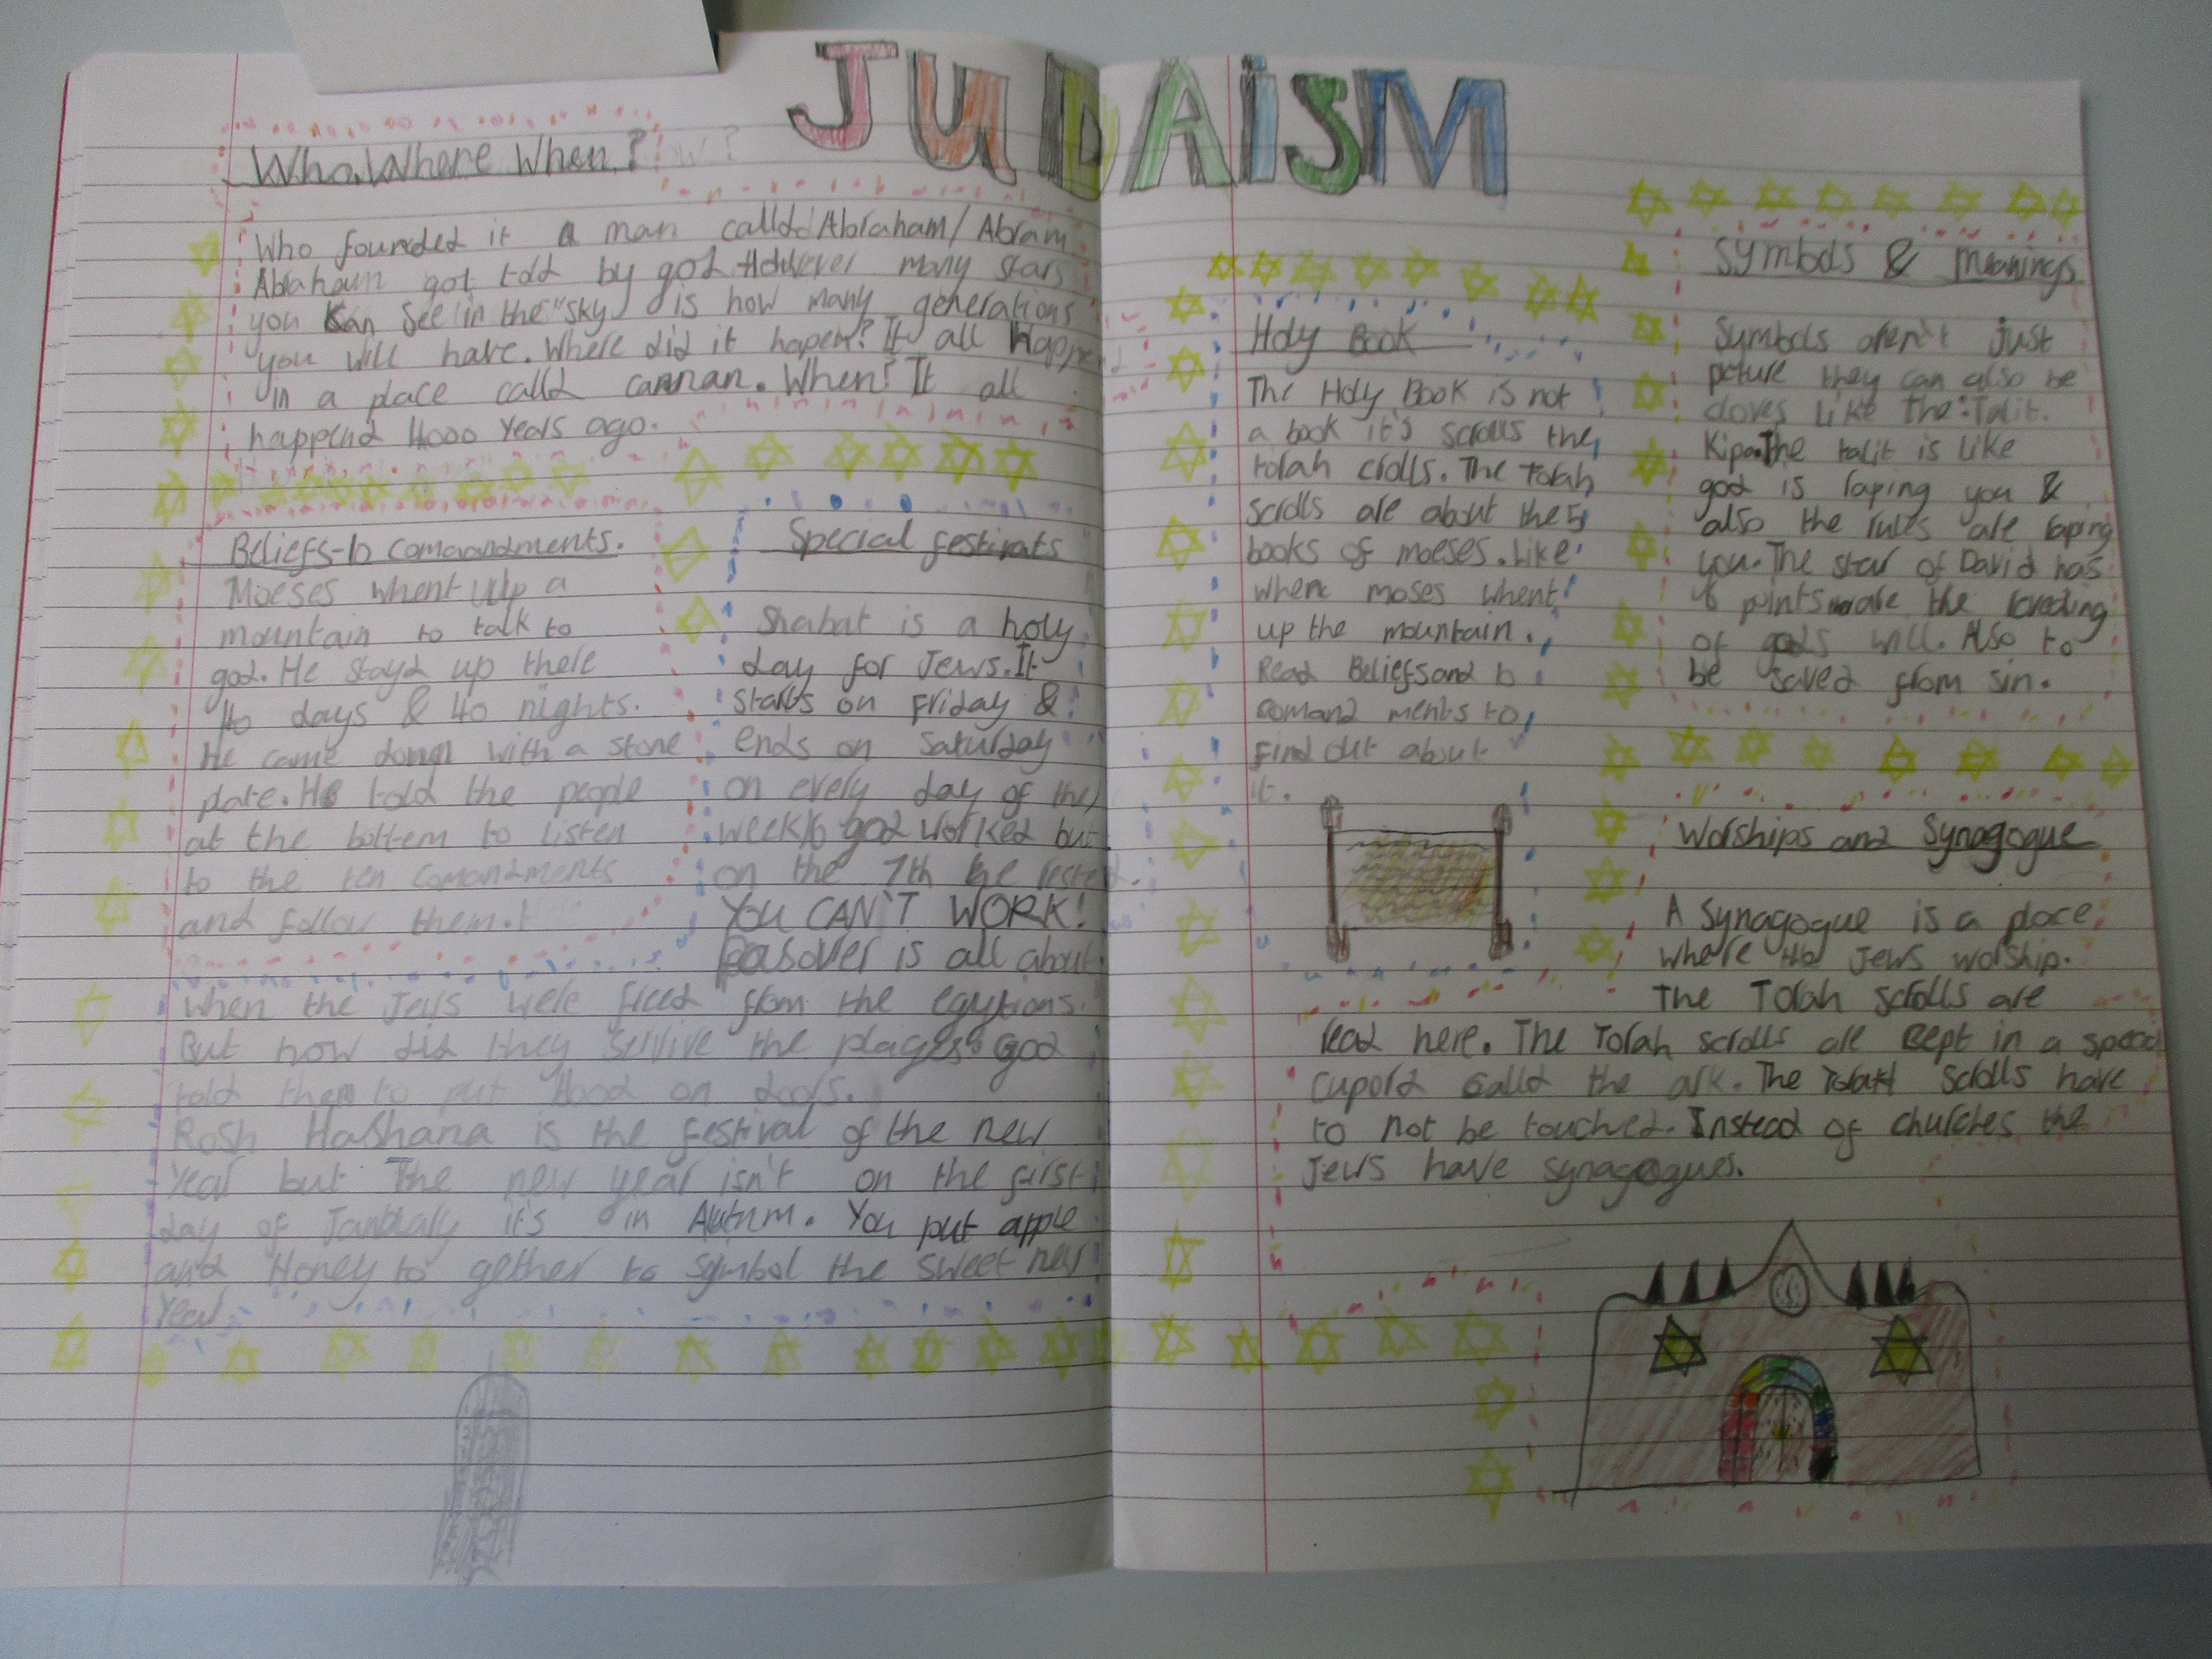 JUDAISM
Who, Where When?
Who founded it a man calld Abraham/Abram
Abraham got told by god However many stars
you Kan See in the "sky is how many generations
you will have. Where did it hapen? It all happend
in a place calld cannan. When? It all
happend 4000 Years ago.
Beliefs-10 comaandments.
Moeses whent up a
mountain to talk to
god. He stayd up there
40 days & 40 nights.
He came down with a stone
plate. He told the people
at the bottem to listen
to the ten comandments
and follow them.
Special festivals
Shabat is a holy
day for Jews. It
starts on Friday &
ends on Saturday
on every day of the
week god worked but
on the 7th he rested.
YOU CAN'T WORK!
Pasover is all about
When the Jews were freed from the egyptions.
But how did they servive the plages? God
told them to put blood on doors.
Rosh Hashana is the festival of the new
Year but The new year isn't on the first
day of it's in Autum. You put apple
and Honey to gether to symbol the sweet new
Year.
Holy Book
The Holy Book is not
a book it's scrolls the
torah crolls. The torah
scrolls are about the 5
books of moeses. Like
where moses whent
up the mountain.
Read Beliefs and 10
comand ments to
find out about
it.
Symbols & meanings
Symbols aren't just
picture they can also be
cloves like the: Talit.
Kipa. The talit is like
god is raping you &
also the rules are raping
you. The star of David has
6 points are the
of gods will. Also to
be saved from sin.
Worships and Synagogue
A Synagogue is a place
where the Jews worship.
The Torah scrolls are
read here. The Torah scrolls are cept in a specal
cupord calld the ark. The Torah scrolls have
to not be touched. Instead of churches the
Jews have synagogues.